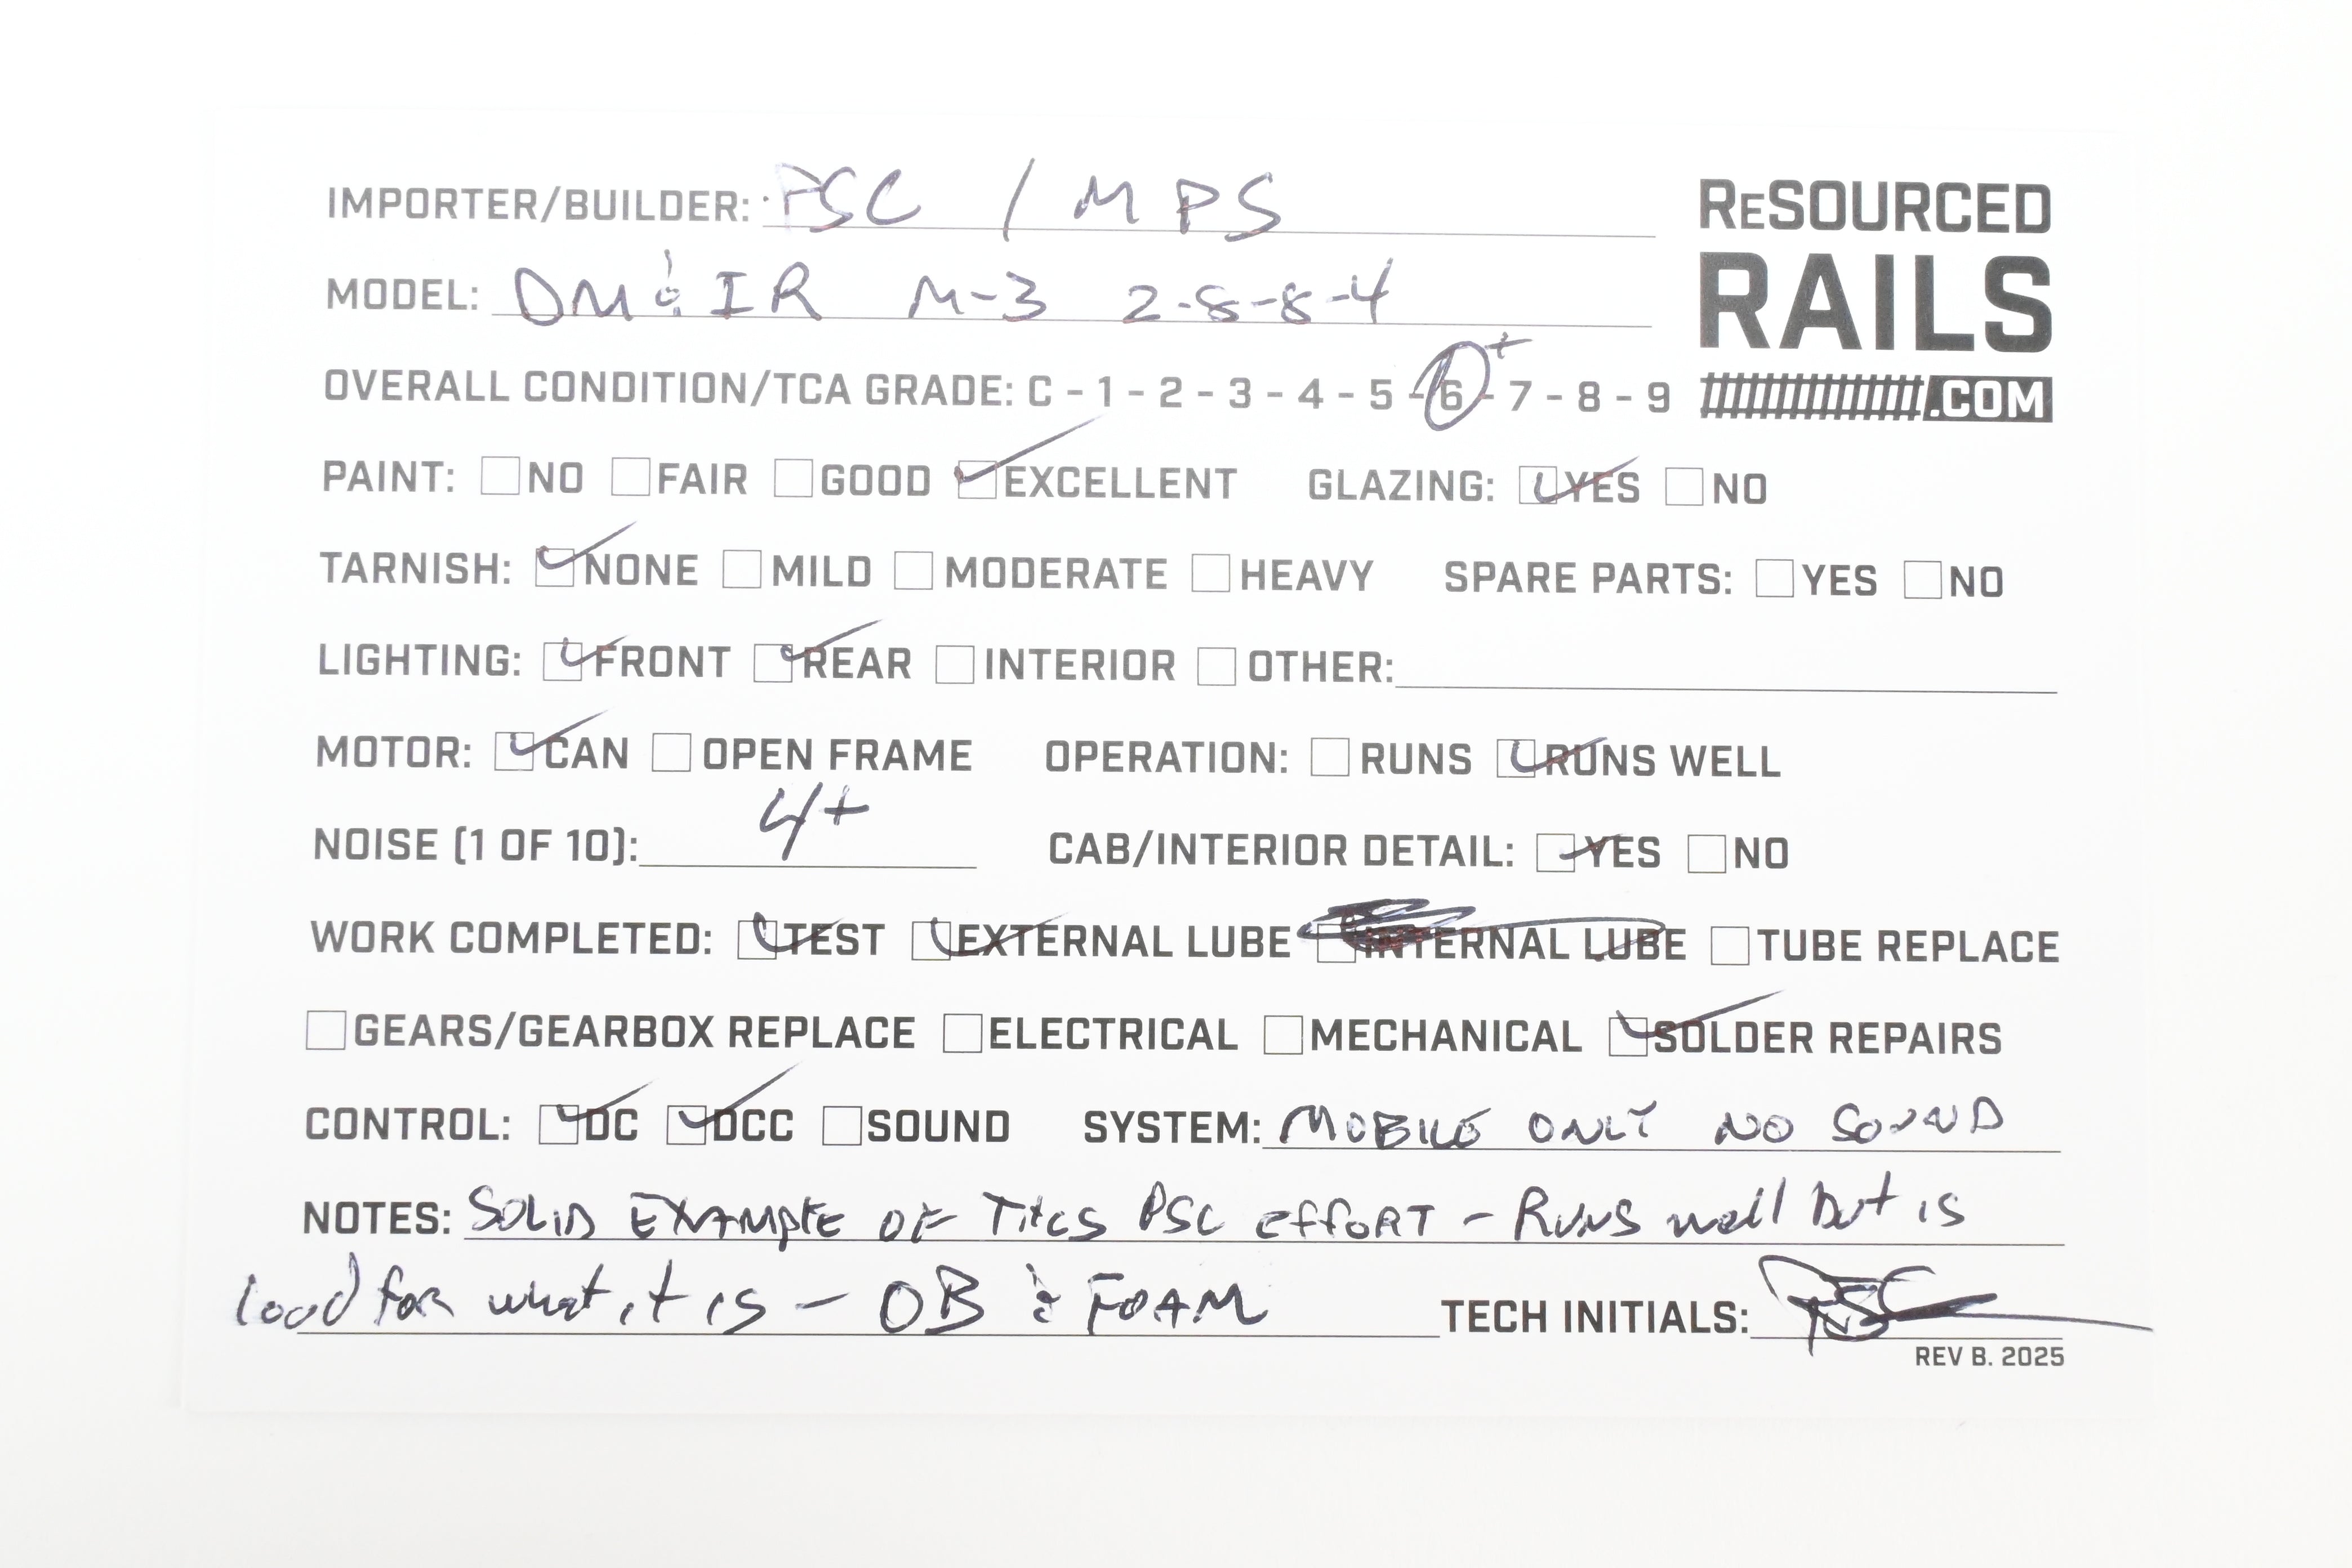 IMPORTER/BUILDER: PSC / MPS
RESOURCED
RAILS
.COM
MODEL: DM&IR M-3 2-8-8-4
OVERALL CONDITION/TCA GRADE: C - 1 - 2 - 3 - 4 - 5 - 6+ - 7 - 8 - 9
PAINT: NO FAIR GOOD ✓EXCELLENT GLAZING: ✓YES NO
TARNISH: ✓NONE MILD MODERATE HEAVY SPARE PARTS: YES NO
LIGHTING: ✓FRONT ✓REAR INTERIOR OTHER:
MOTOR: ✓CAN OPEN FRAME OPERATION: RUNS ✓RUNS WELL
NOISE (1 OF 10): 4+ CAB/INTERIOR DETAIL: ✓YES NO
WORK COMPLETED: ✓TEST ✓EXTERNAL LUBE INTERNAL LUBE TUBE REPLACE
GEARS/GEARBOX REPLACE ELECTRICAL MECHANICAL ✓SOLDER REPAIRS
CONTROL: ✓DC ✓DCC SOUND SYSTEM: MOBILE ONLY NO SOUND
NOTES: SOLID EXAMPLE OF THIS PSC EFFORT - RUNS well but is
loud for what it is - OB & FOAM TECH INITIALS:
REV B. 2025